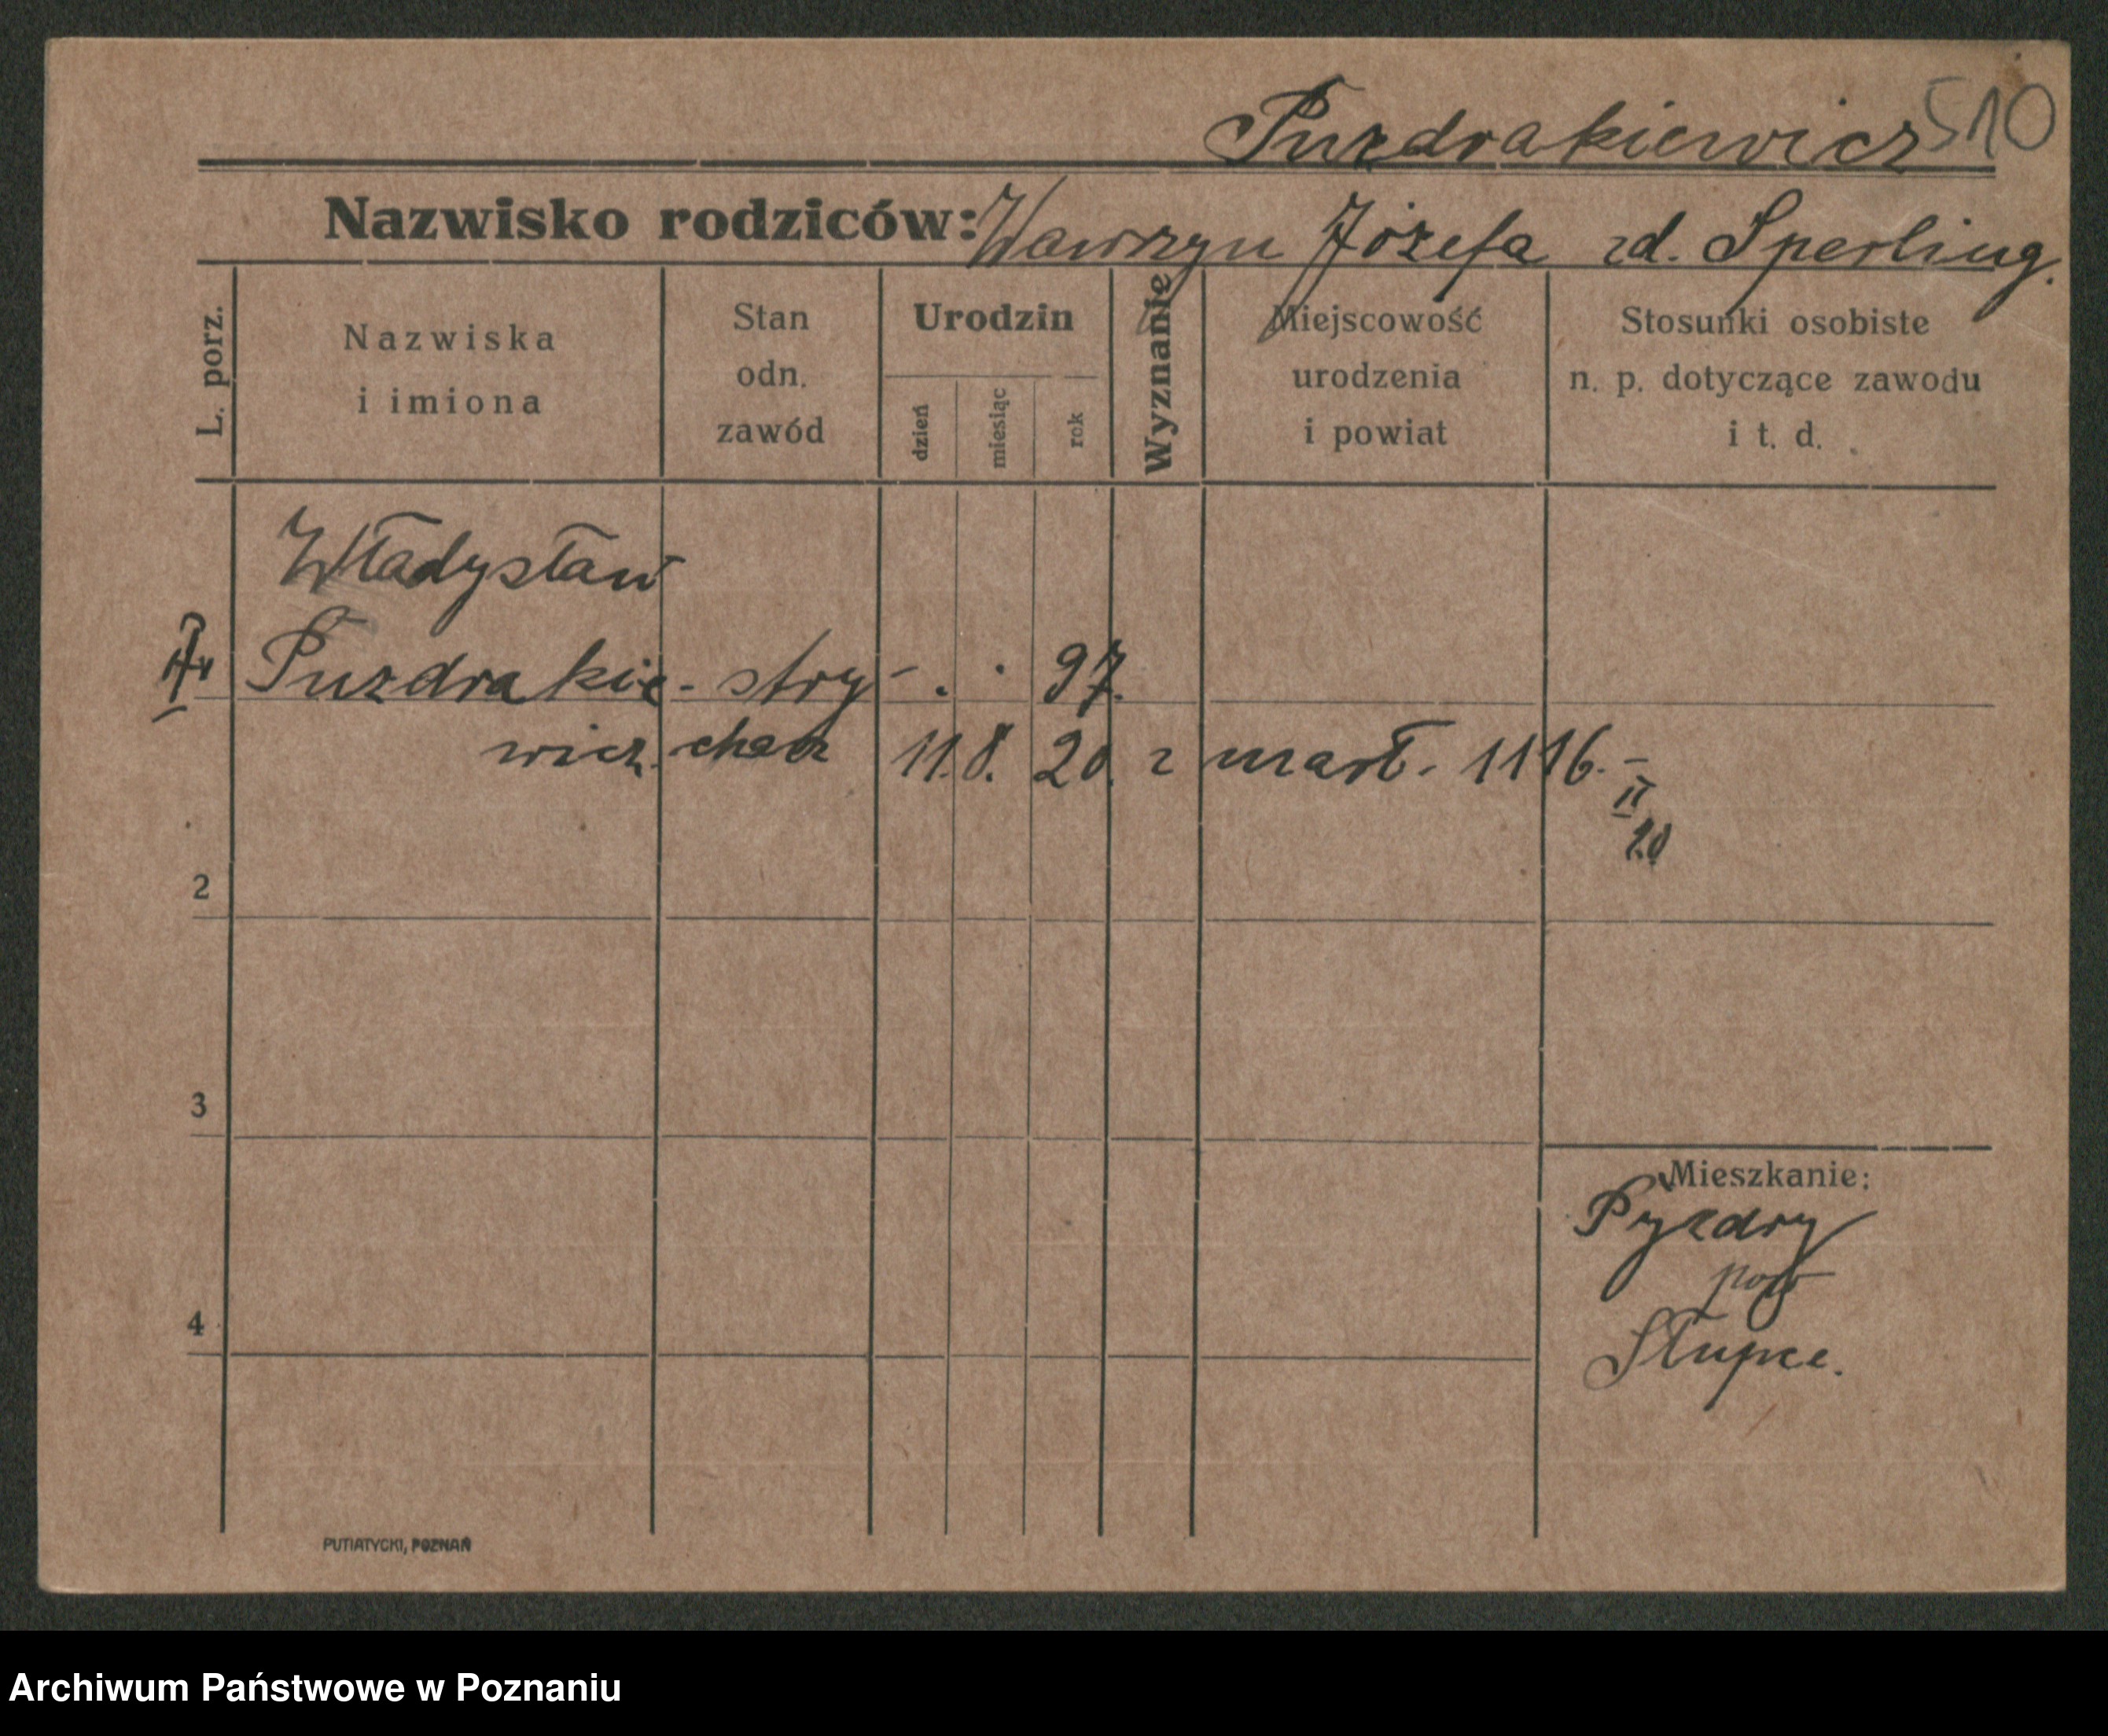 Puzdrakiewicz 510
Nazwisko rodziców: Wawrzyn Józefa zd. Sperling.
L. porz.
Nazwiska
i imiona
Stan
odn.
zawód
Urodzin
dzień
miesiąc
rok
Wyznanie
Miejscowość
urodzenia
i powiat
Stosunki osobiste
n. p. dotyczące zawodu
i t. d.
Władysław
Puzdrakie- stry- . . 97.
wicz. charz 11. 8. 20. zmarł. 1116.-
II
20
2
3
4
Mieszkanie:
Pyzdry
pow
Słupce.
PUTIATYCKI, POZNAŃ
Archiwum Państwowe w Poznaniu